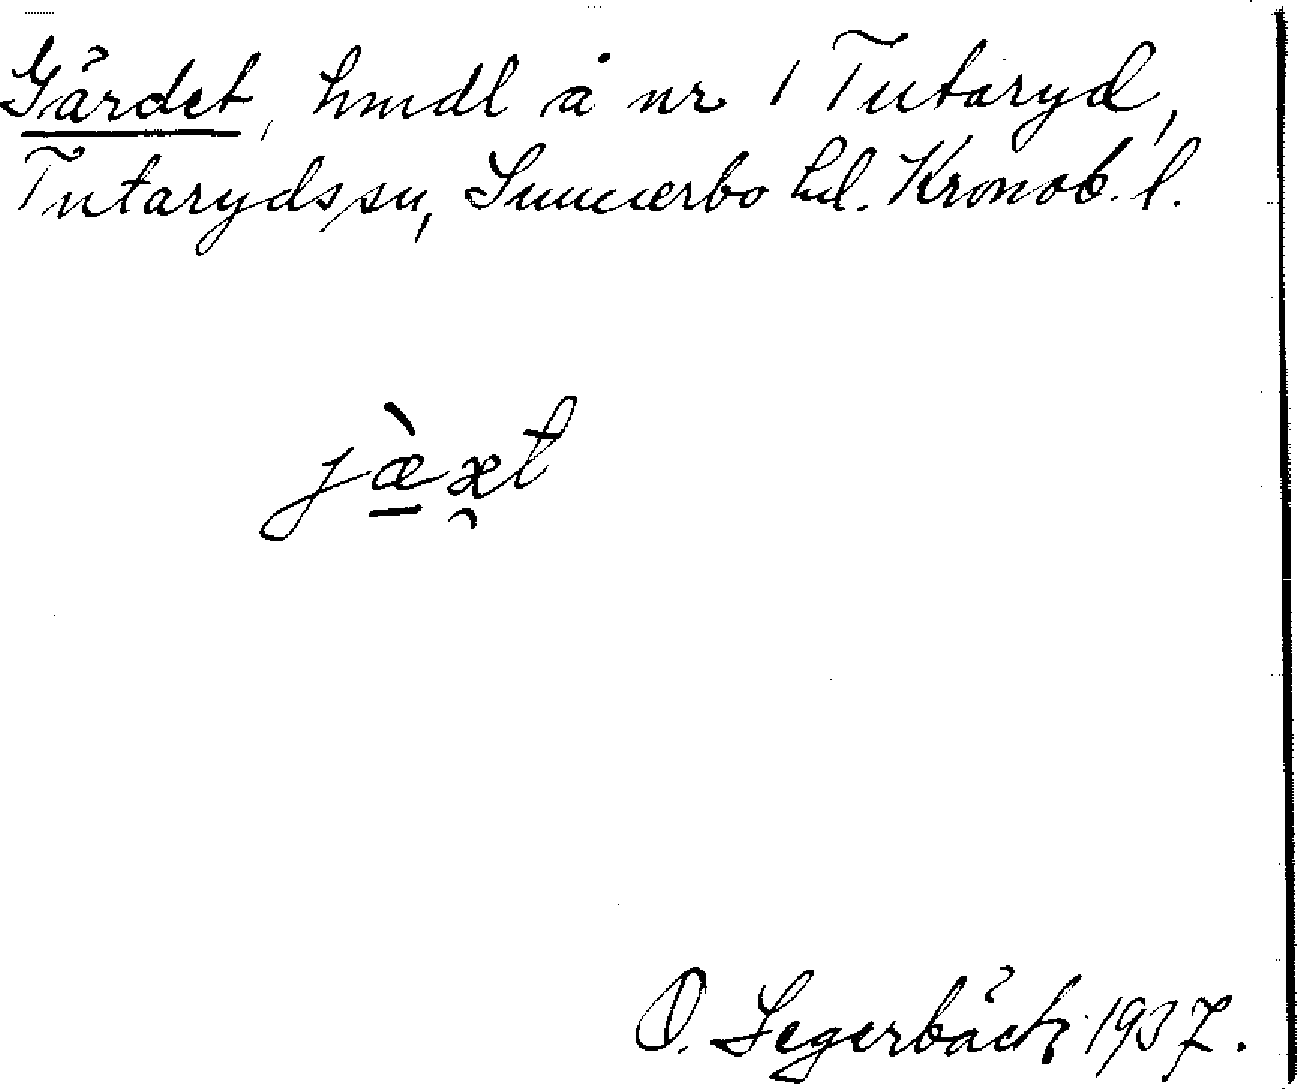 Gärdet, hmdl å nr 1 Tutaryd,
Tutaryds sn, Sunnerbo hd. Kronob. l.
jæ̠̀æ̯t
O. Segerbäck 1937.